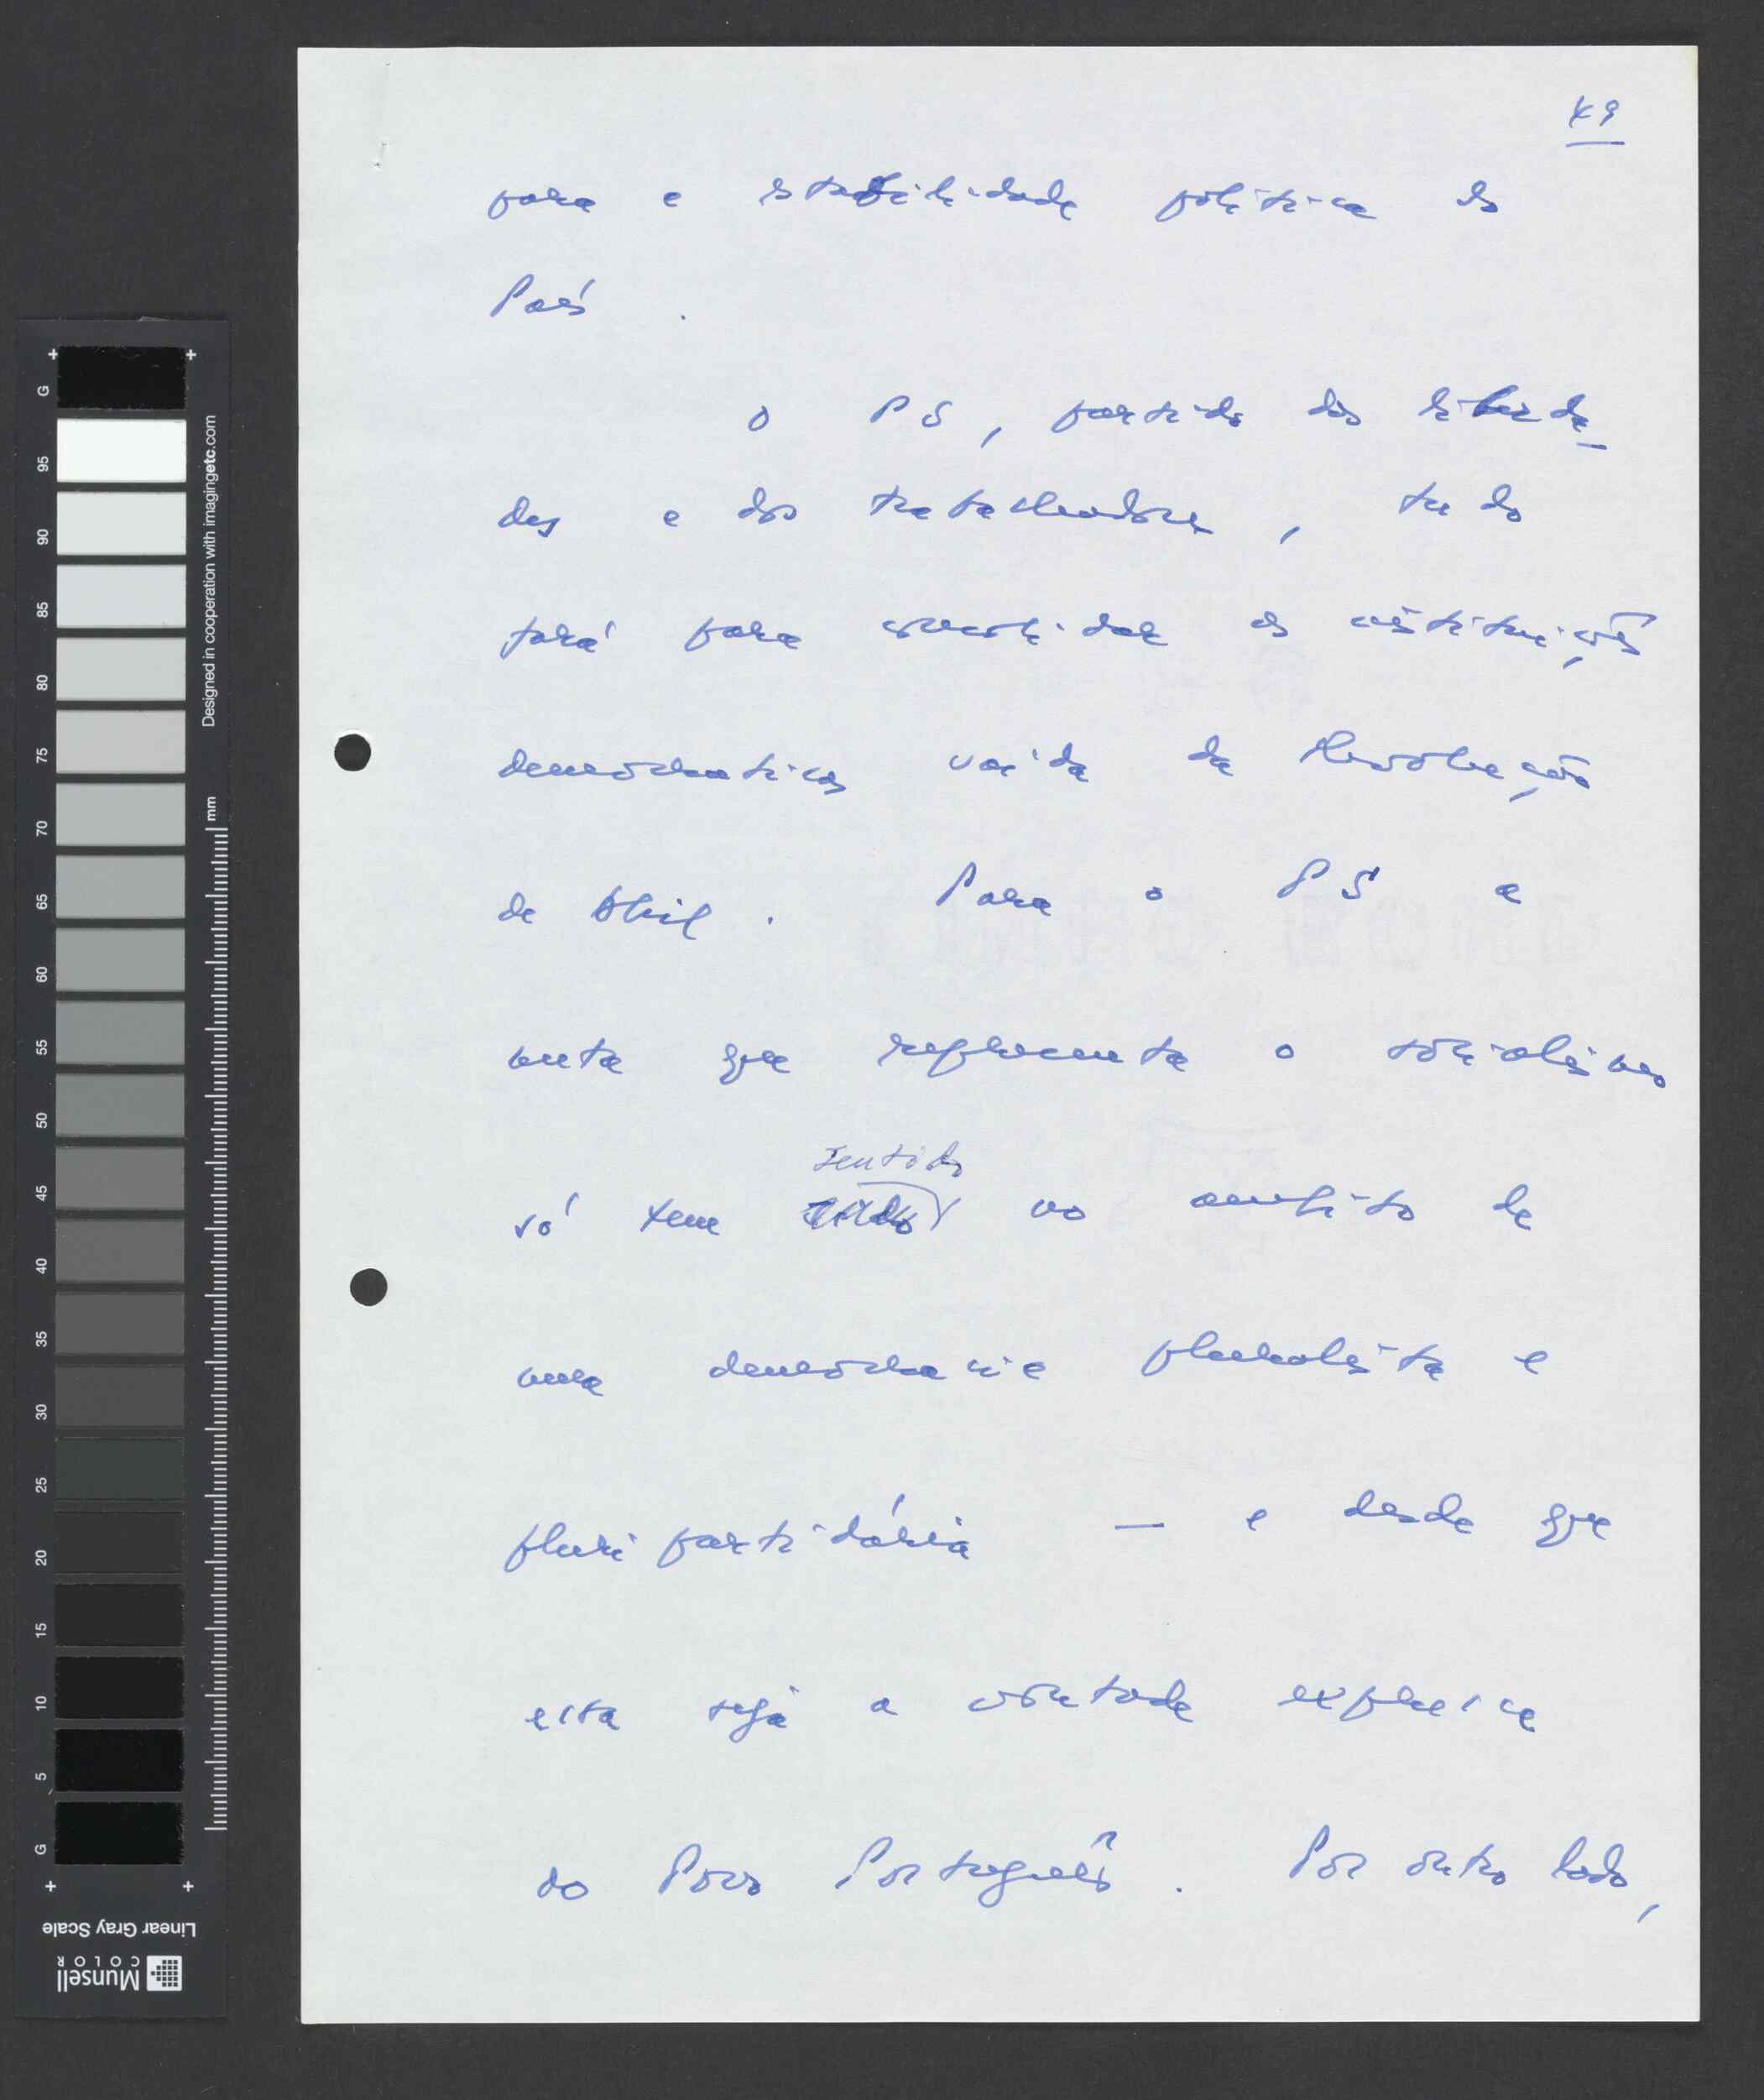 49
para a estabilidade política do
País.
O PS, partido das liberda-
des e dos trabalhadores, tudo
fará para consolidar as instituições
democráticas da Revolução
de Abril. Para o PS a
meta que representa o socialismo
sentido
só tem no âmbito de
uma democracia pluralista e
pluripartidária — e desde que
esta seja a vontade expressa
do Povo Português. Por outro lado,
G
95
90
85
80
75
70
65
60
55
50
45
40
35
30
25
20
15
10
5
G
mm
Designed in cooperation with imagingetc.com
Linear Gray Scale
Munsell
COLOR